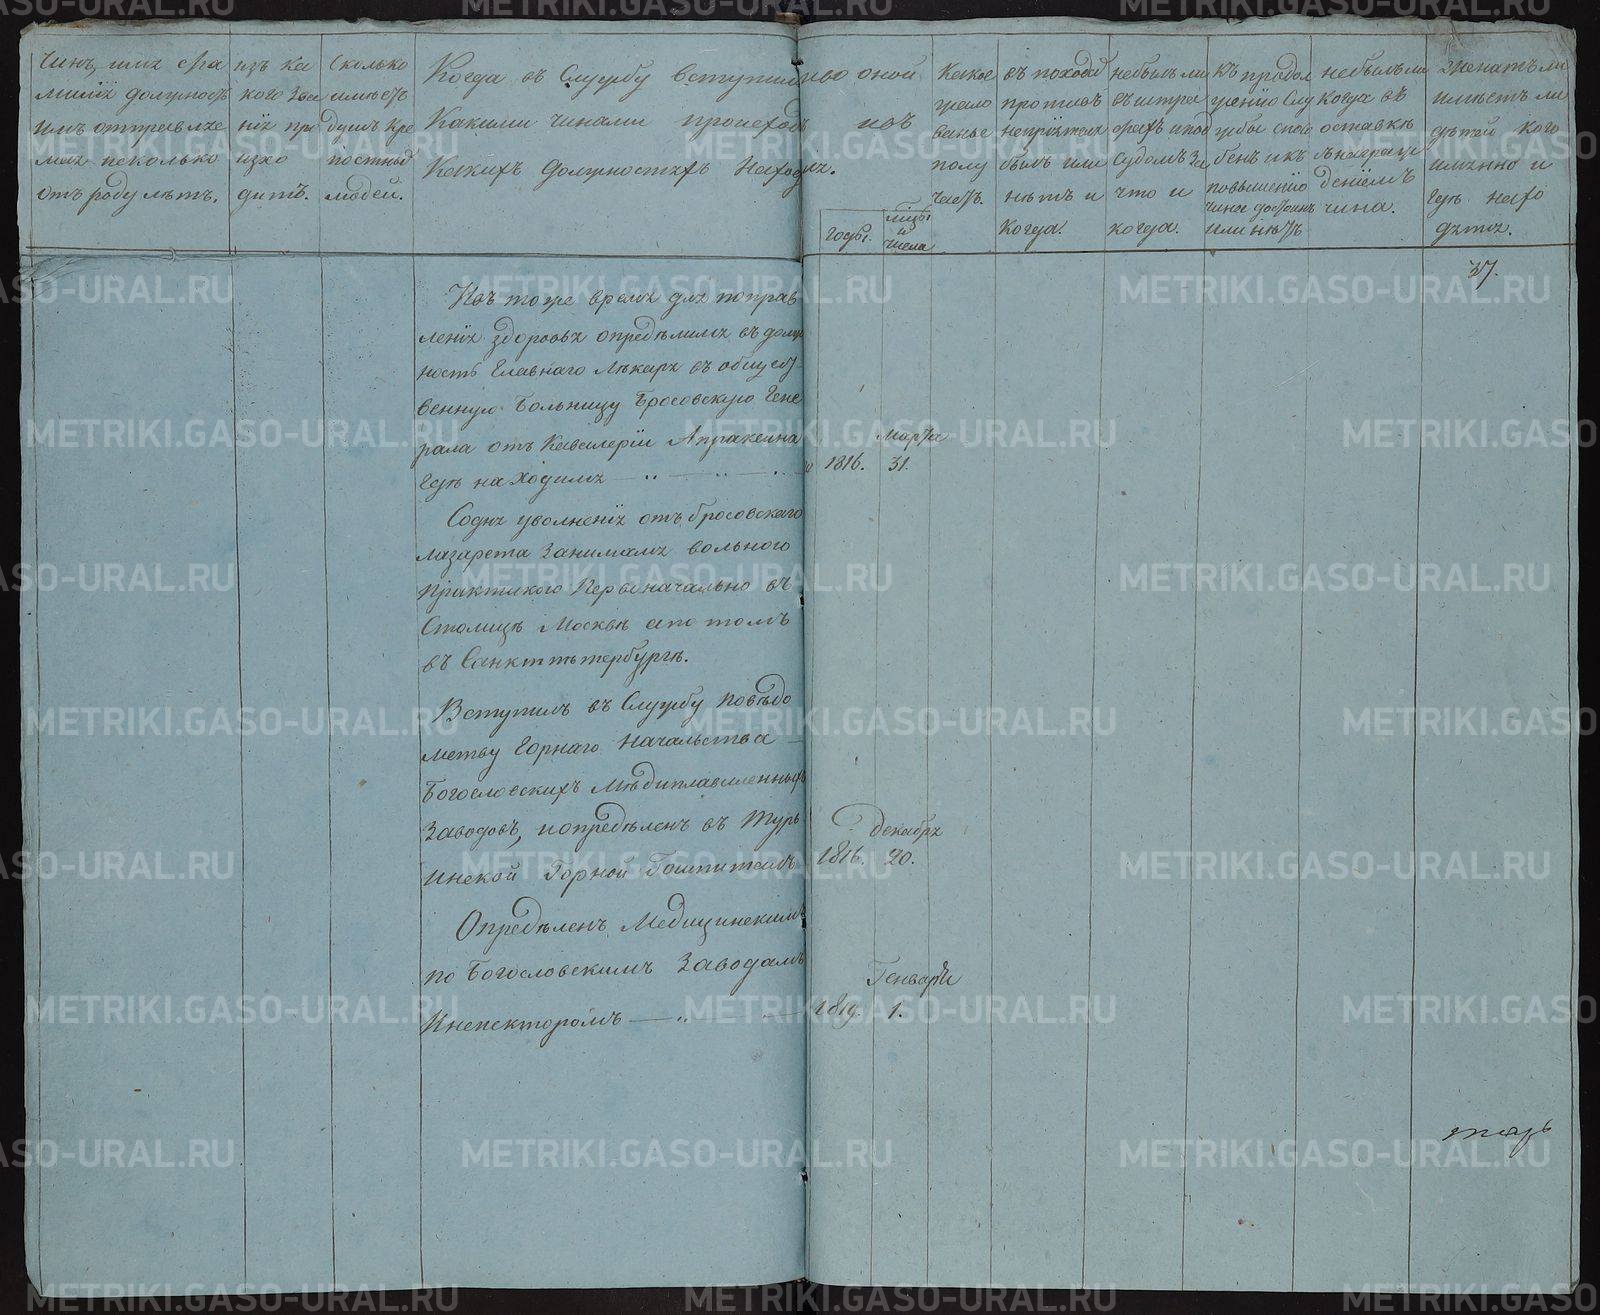 Чинъ, имя фа
милия должность
имъ отправляе
мая нсколько
отъ роду лѣтъ.
изъ ка
кого зва
нія про
изхо
дитъ.
Сколько
имѣетъ
душъ кре
постныхъ
людей.
Когда въ Службу вступилъ и во оной
Какими чинами происходъ ихъ
Какихъ должностяхъ находил.
Годы.
числа
Какое
жало
ванье
полу
чаетъ.
въ походахъ
противъ
непріятеля
былъ или
нѣтъ и
когда.
небылъ ли
въ штра
фахъ и под
судомъ за
что и
когда.
къ продол
женію слу
жбы спосо
бенъ и къ
повышенію
чина достоинъ
или нѣтъ
небылъ ли
когда въ
оставкѣ
съ награж
деніемъ
чина.
Женатъ ли
имѣетъ ли
дѣтей кого
имянно и
гдѣ нахо
дятся.
37.
Въ тоже время для поправ
ленія здоровья опредѣлился въ долж
ность Главнаго Лѣкаря въ общест
венную Больницу Бросовскую Гене
рала отъ Кавалеріи Апраксина
Гдѣ находился — „ — „ — „
Марта
1816. 31.
Содня уволненія отъ Бросовскаго
лазарета занимался вольного
практикою Первоначально въ
Столицѣ Москвѣ а потомъ
въ Санктпетербургѣ.
Вступилъ въ Службу повѣдо
мству Горнаго Начальства —
Богословскихъ Мѣдиплавиленныхъ
Заводовъ, и опредѣленъ въ Турь
инской Горной Гошпиталь
Декабря
1816. 20.
Опредѣленъ Медицинскимъ
по Богословскимъ Заводамъ
Инспекторомъ — „ —
Генваря
1819. 1.
METRIKI.GASO-URAL.RU